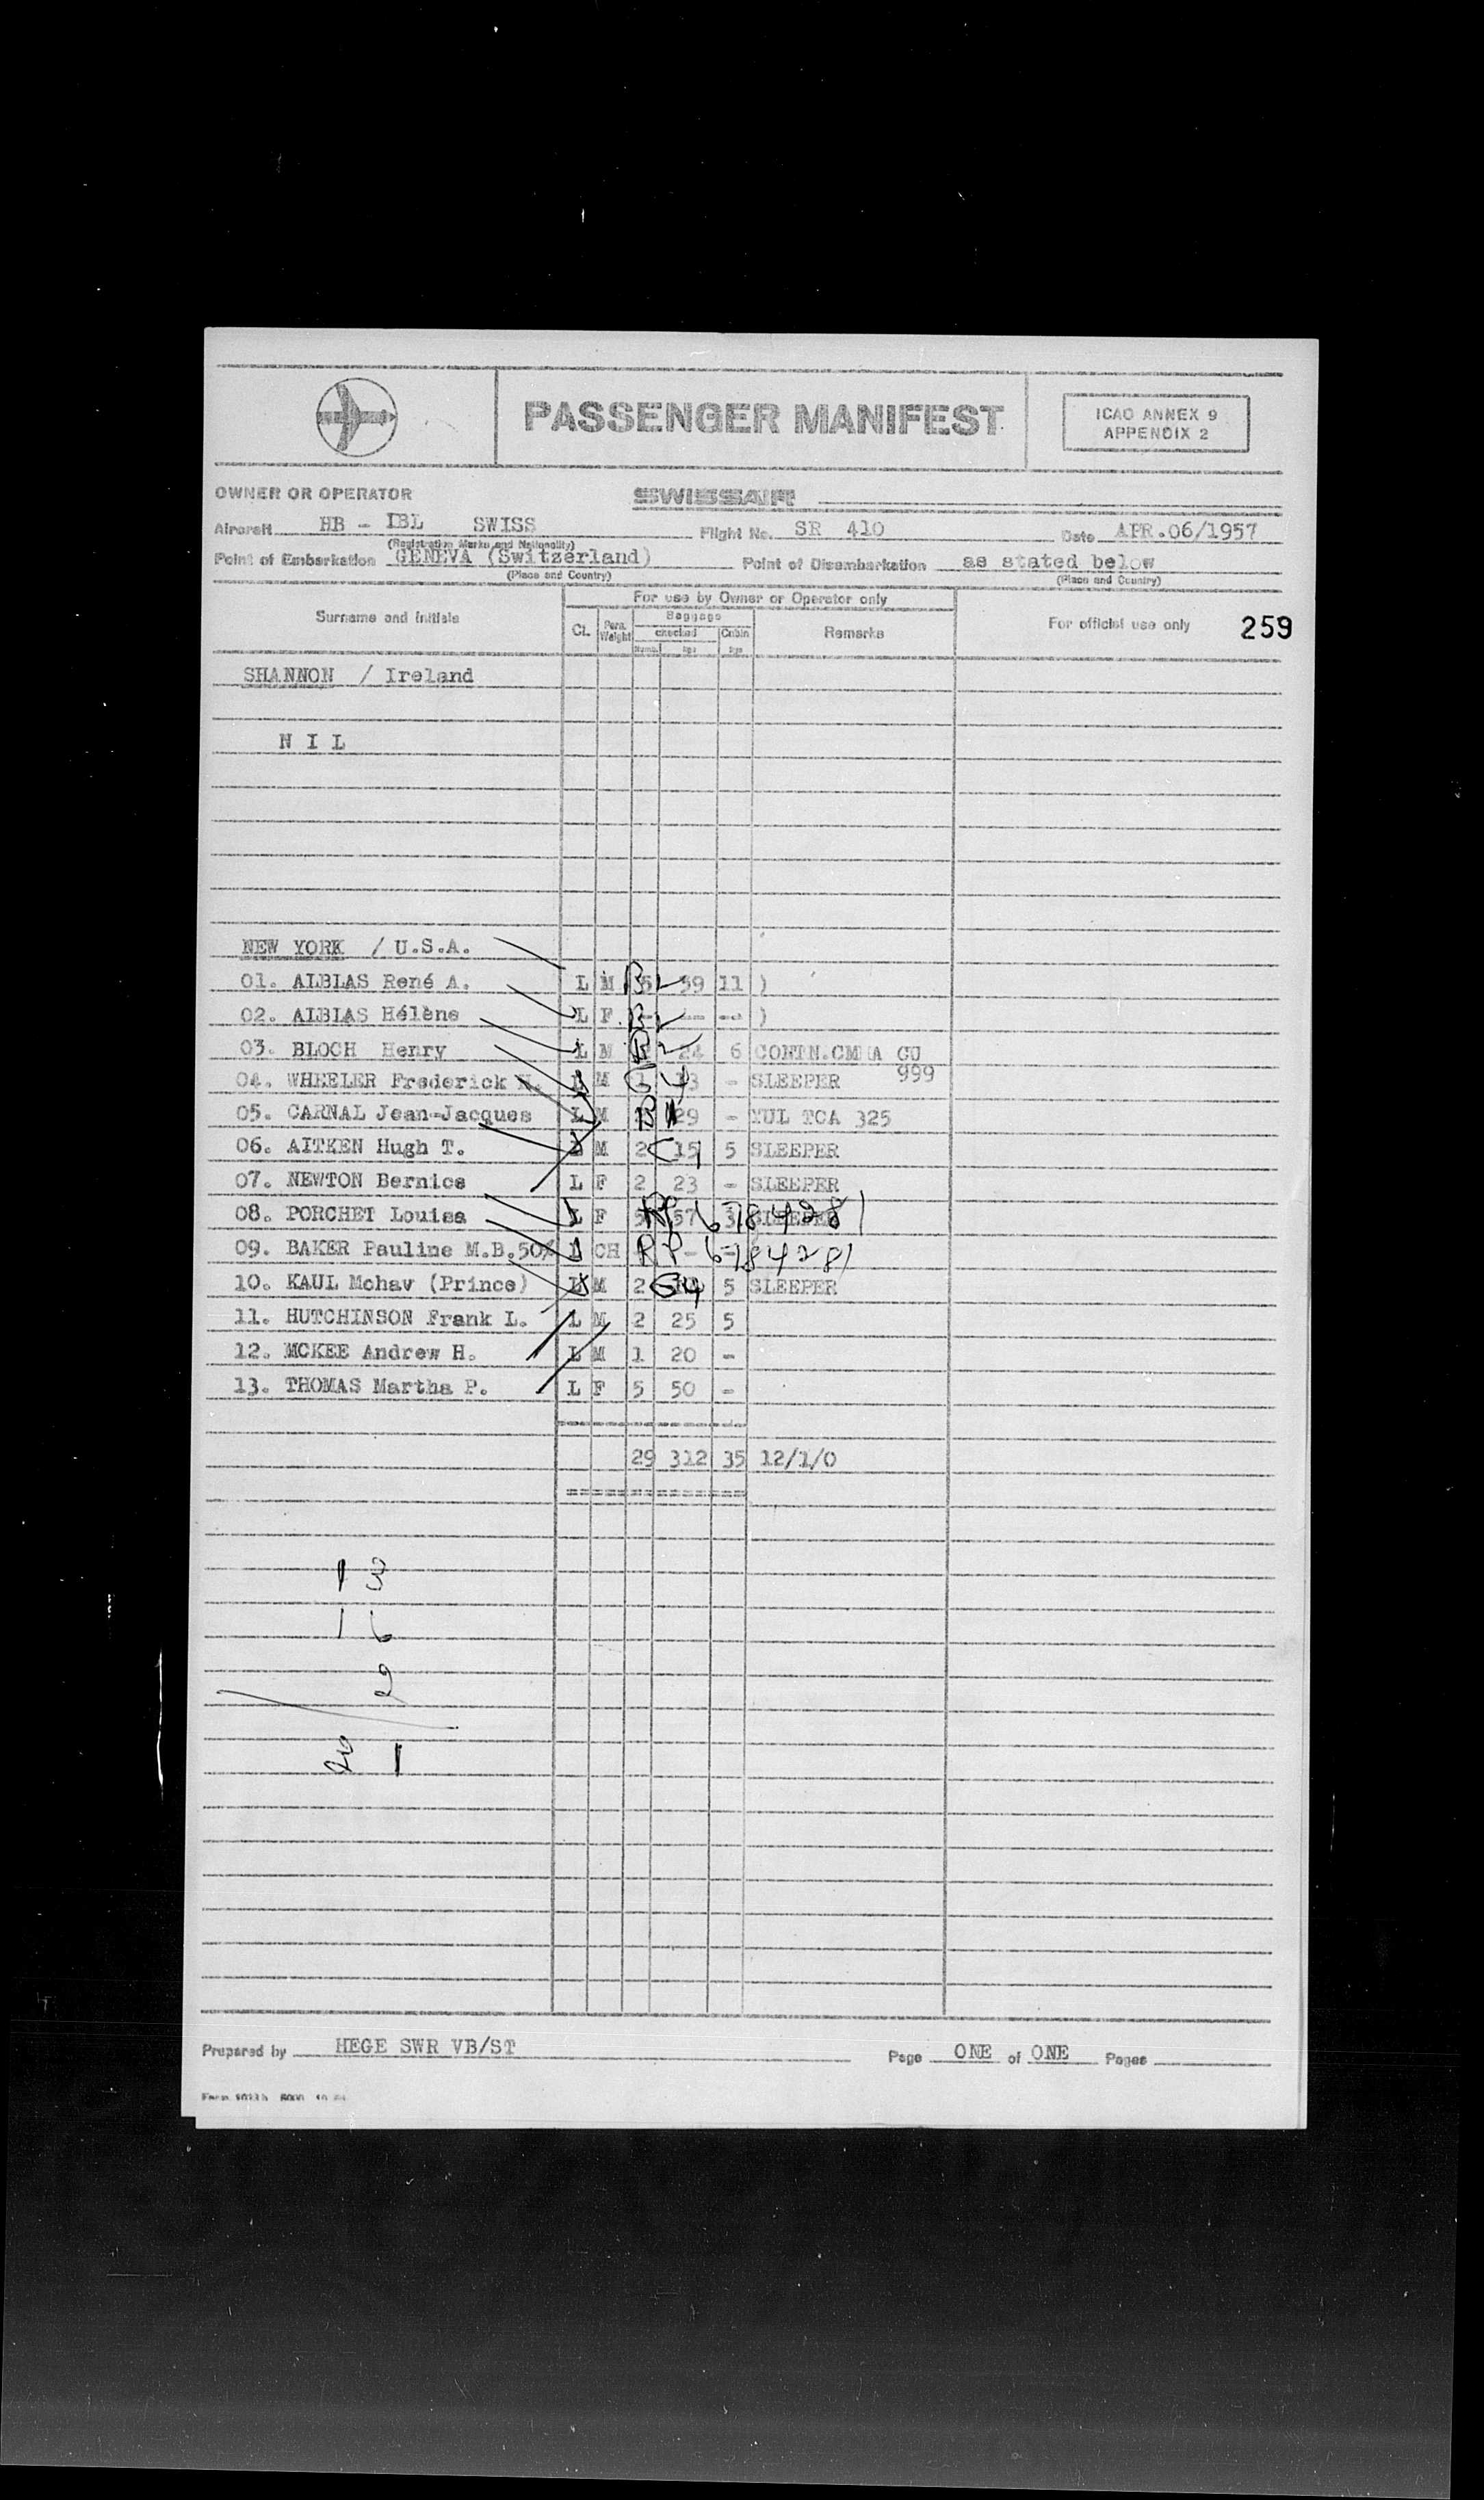 PASSENGER MANIFEST
ICAO ANNEX 9
APPENDIX 2
OWNER OR OPERATOR SWISSAIR
Aircraft HB - IBL SWISS Flight No. SR 410 Date APR.06/1957
(Registration Marks and Nationality)
Point of Embarkation GENEVA (Switzerland) Point of Disembarkation as stated below
(Place and Country) (Place and Country)
For use by Owner or Operator only
Surname and initials Cl. Pers. Weight Baggage checked Cabin Remarks For official use only 259
Numb. kgs kgs
SHANNON / Ireland
N I L
NEW YORK / U.S.A.
01. ALBLAS René A. L M B2 59 11 )
02. ALBLAS Hélène L F B2 -- -- )
03. BLOCH Henry L M B2 24 6 CONTN.CMHA CU
999
04. WHEELER Frederick L M 1 G4 - SLEEPER
05. CARNAL Jean-Jacques L M B 29 - YUL TCA 325
06. AITKEN Hugh T. M 2 15 5 SLEEPER
07. NEWTON Bernice L F 2 23 - SLEEPER
08. PORCHET Louisa L F 5 57 3 SLEEPER RP 6784281
09. BAKER Pauline M.B.50% CH RP 6784281
10. KAUL Mohav (Prince) L M 2 G4 5 SLEEPER
11. HUTCHINSON Frank L. L M 2 25 5
12. MCKEE Andrew H. L M 1 20 -
13. THOMAS Martha P. L F 5 50 -
29 312 35 12/1/0
13
16
2
2 1
Prepared by HEGE SWR VB/ST Page ONE of ONE Pages